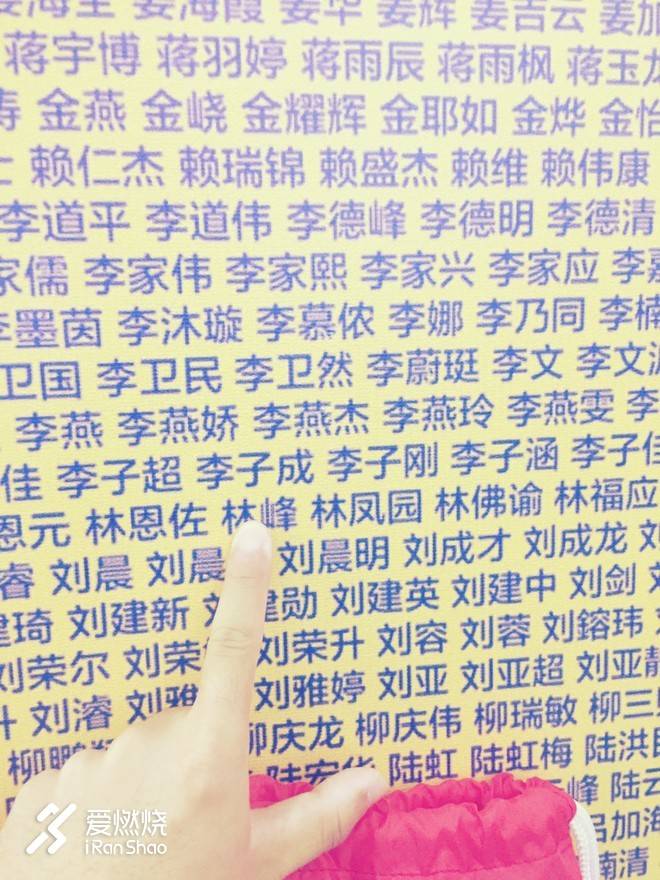 姜海霞 姜华 姜辉 姜吉云
蒋宇博 蒋羽婷 蒋雨辰 蒋雨枫 蒋玉
金燕 金峣 金耀辉 金耶如 金烨 金怡
赖仁杰 赖瑞锦 赖盛杰 赖维 赖伟康
李道平 李道伟 李德峰 李德明 李德清
家儒 李家伟 李家熙 李家兴 李家应 李
李墨茵 李沐璇 李慕侬 李娜 李乃同 李楠
卫国 李卫民 李卫然 李蔚珽 李文 李文
李燕 李燕娇 李燕杰 李燕玲 李燕雯 李
佳 李子超 李子成 李子刚 李子涵 李子佳
恩元 林恩佐 林峰 林凤园 林佛谕 林福应
睿 刘晨 刘晨 刘晨明 刘成才 刘成龙 刘
建琦 刘建新 建勋 刘建英 刘建中 刘剑
刘荣尔 刘荣 刘荣升 刘容 刘蓉 刘鎔玮
刘濬 刘雅 刘雅婷 刘亚 刘亚超 刘亚静
柳鹏 柳庆龙 柳庆伟 柳瑞敏 柳三
陆宏华 陆虹 陆虹梅 陆洪
峰 陆云
吕加海
楠清
爱燃烧
iRanShao